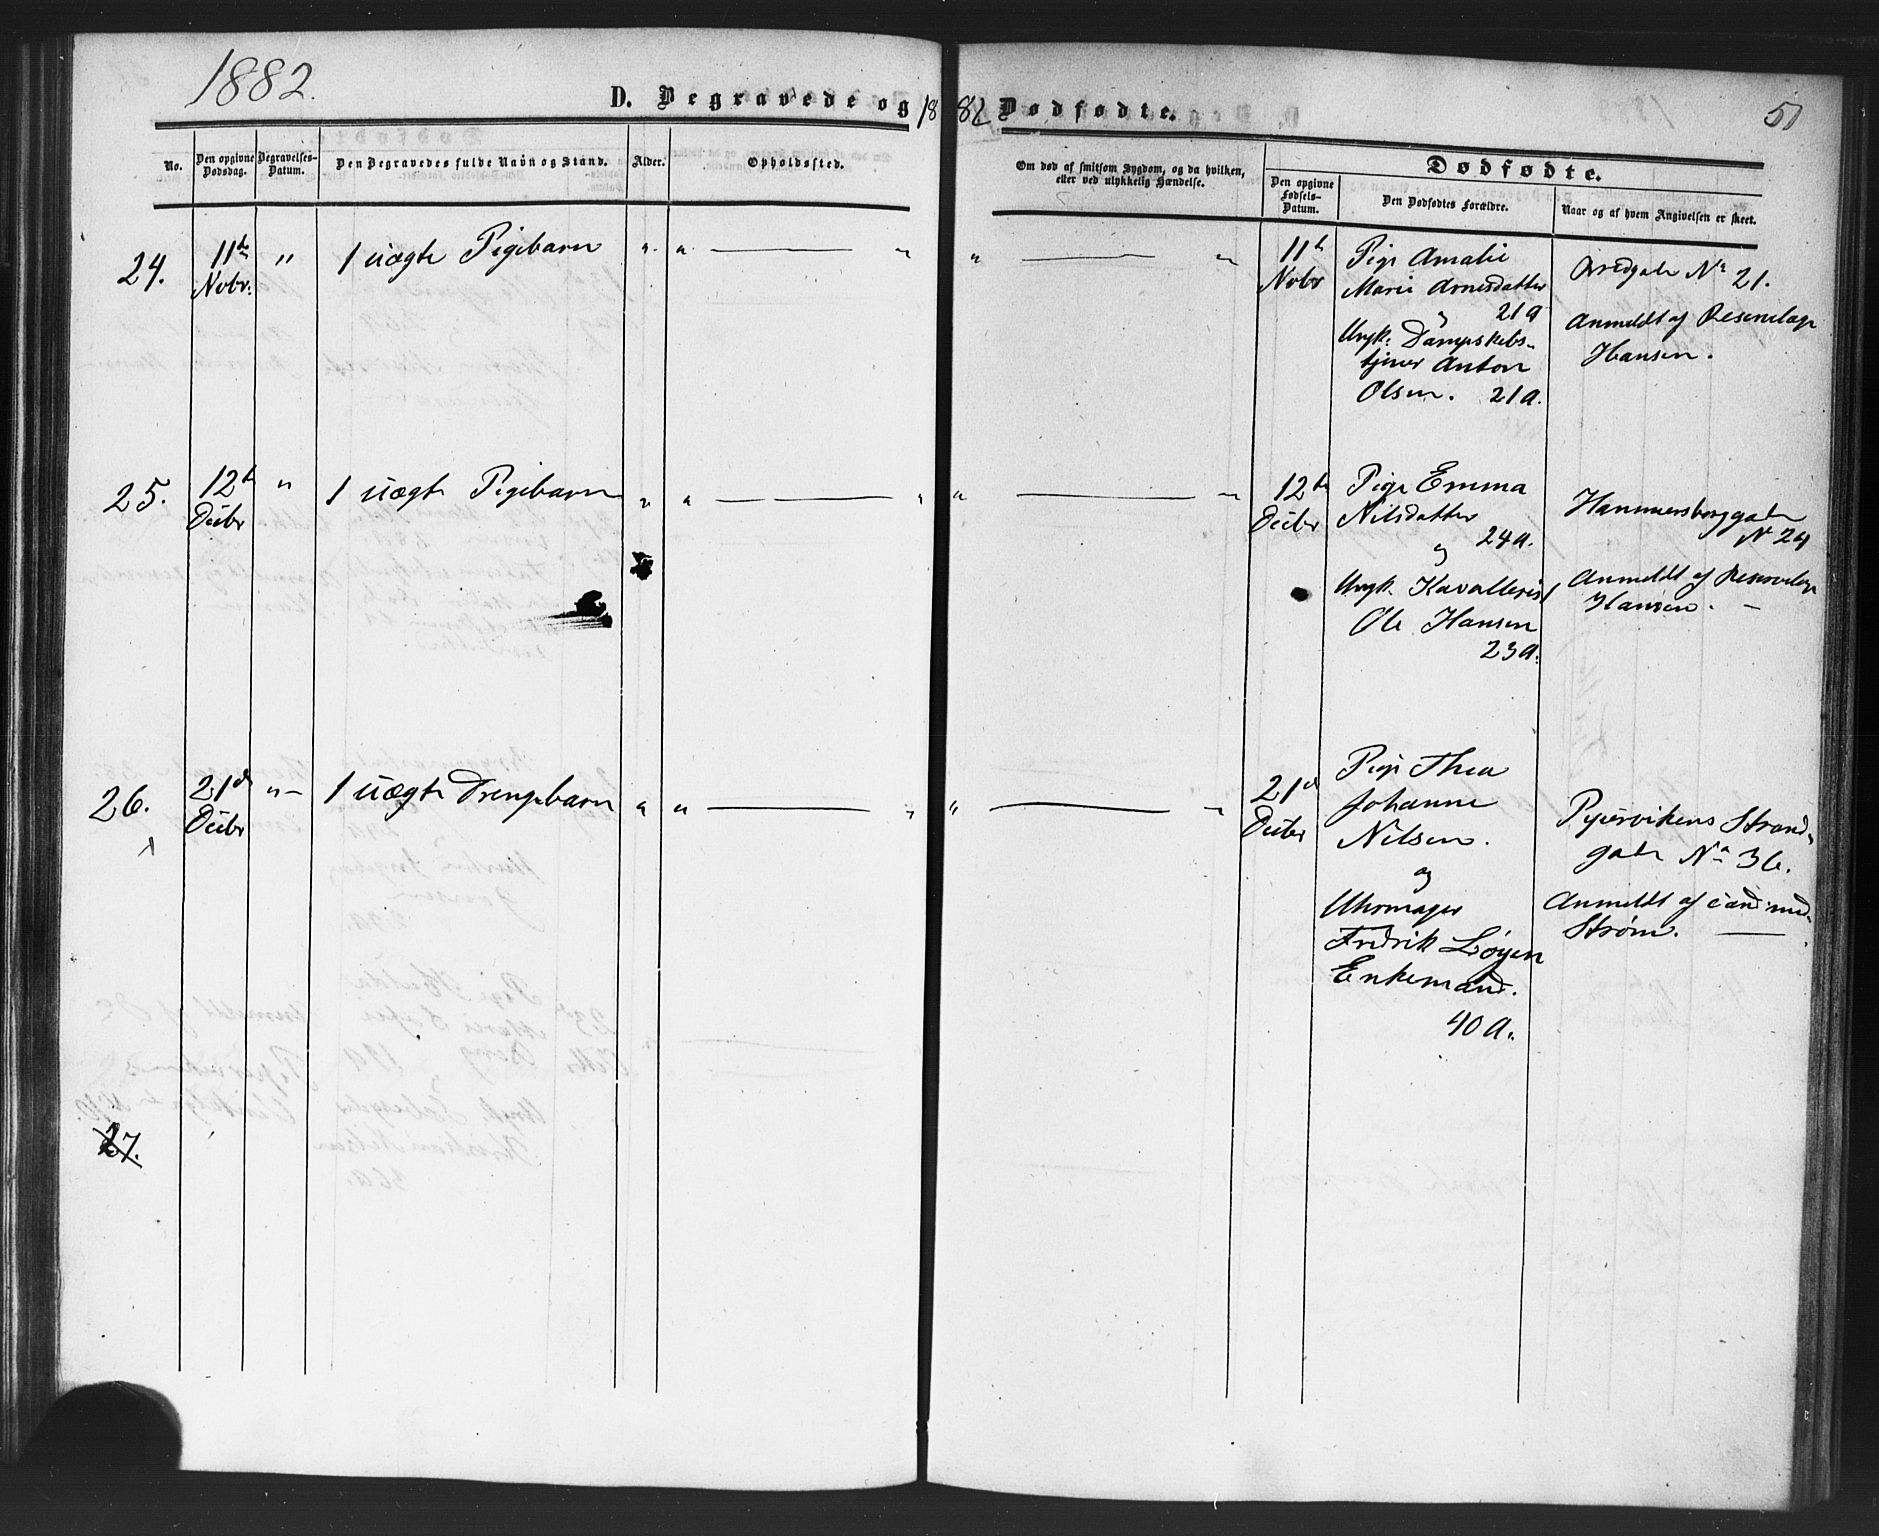 1882.
D. Begravede og 1882 Dødfødte.
51
No.
Den opgivne Dødsdag.
Begravelses-Datum.
Den Begravedes fulde Navn og Stand.
Alder.
Opholdssted.
Om død af smitsom Sygdom, og da hvilken,
eller ved ulykkelig Hændelse.
Dødfødte.
Den opgivne Fødsels-Datum.
Den Dødfødtes Forældre.
Naar og af hvem Angivelsen er skeet.
24.
11te
Nobr.
"
1 uægte Pigebarn
"
"
"
"
"
11te
Nobr
Pige Amalie
Marie Arnesdatter
21 a
og
Ungk. Dampskibs-
tjener Anton
Olsen. 21 a.
No 21.
Anmeldt af Reservelæge
Hansen.
25.
12te
Decbr
"
1 uægte Pigebarn
"
"
"
"
"
12te
Decbr
Pige Emma
Nilsdatter
24 a.
og
Ungk. Kavallerist
Ole Hansen
23 a.
Hammersborggade
No 24
Anmeldt af Reservelæge
Hansen. —
26.
21de
Decbr
" –
1 uægte Drengebarn
"
"
"
"
"
21de
Decbr
Pige Thea
Johanne
Nilsen.
og
Uhrmager
Fredrik Løyen
Enkemand.
40 a.
Pipervikens Strand-
gade No 36.
Anmeldt af cand. med.
Strøm. —
27.